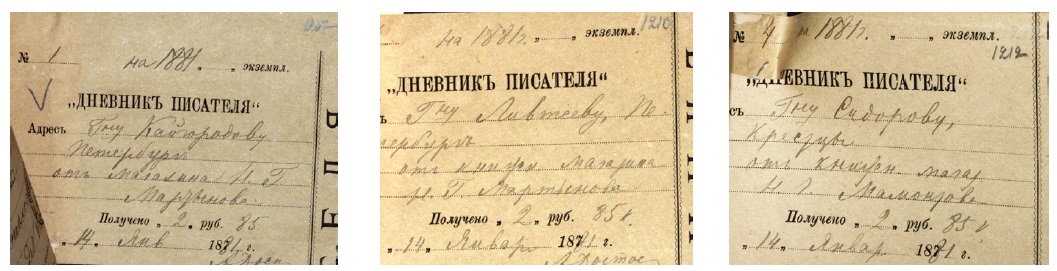 № 1 на 1881 „ „ экземпл.
„ДНЕВНИКЪ ПИСАТЕЛЯ“
Адресъ Гну Кайгородову
Петербургъ
отъ магазина Н. Г.
Мартынова
Получено „ 2 „ руб. 85
„ 14 „ Янв 1881 г.
1210
на 1881г. „ „ экземпл.
„ДНЕВНИКЪ ПИСАТЕЛЯ“
ъ Гну Ливтееву, Пе-
тербургъ
отъ книжн магазина
Н. Г. Мартынова
Получено „ 2 „ руб. 85 к
„ 14 „ Январ 1881 г.
№ 4 на 1881г. „ „ экземпл.
1212
ДНЕВНИКЪ ПИСАТЕЛЯ“
съ Гну Сидорову,
Крестцы
отъ книжн. магаз
Н Г Мамонтова
Получено „ 2 „ руб. 85 к
„ 14 „ Январ 1881 г.